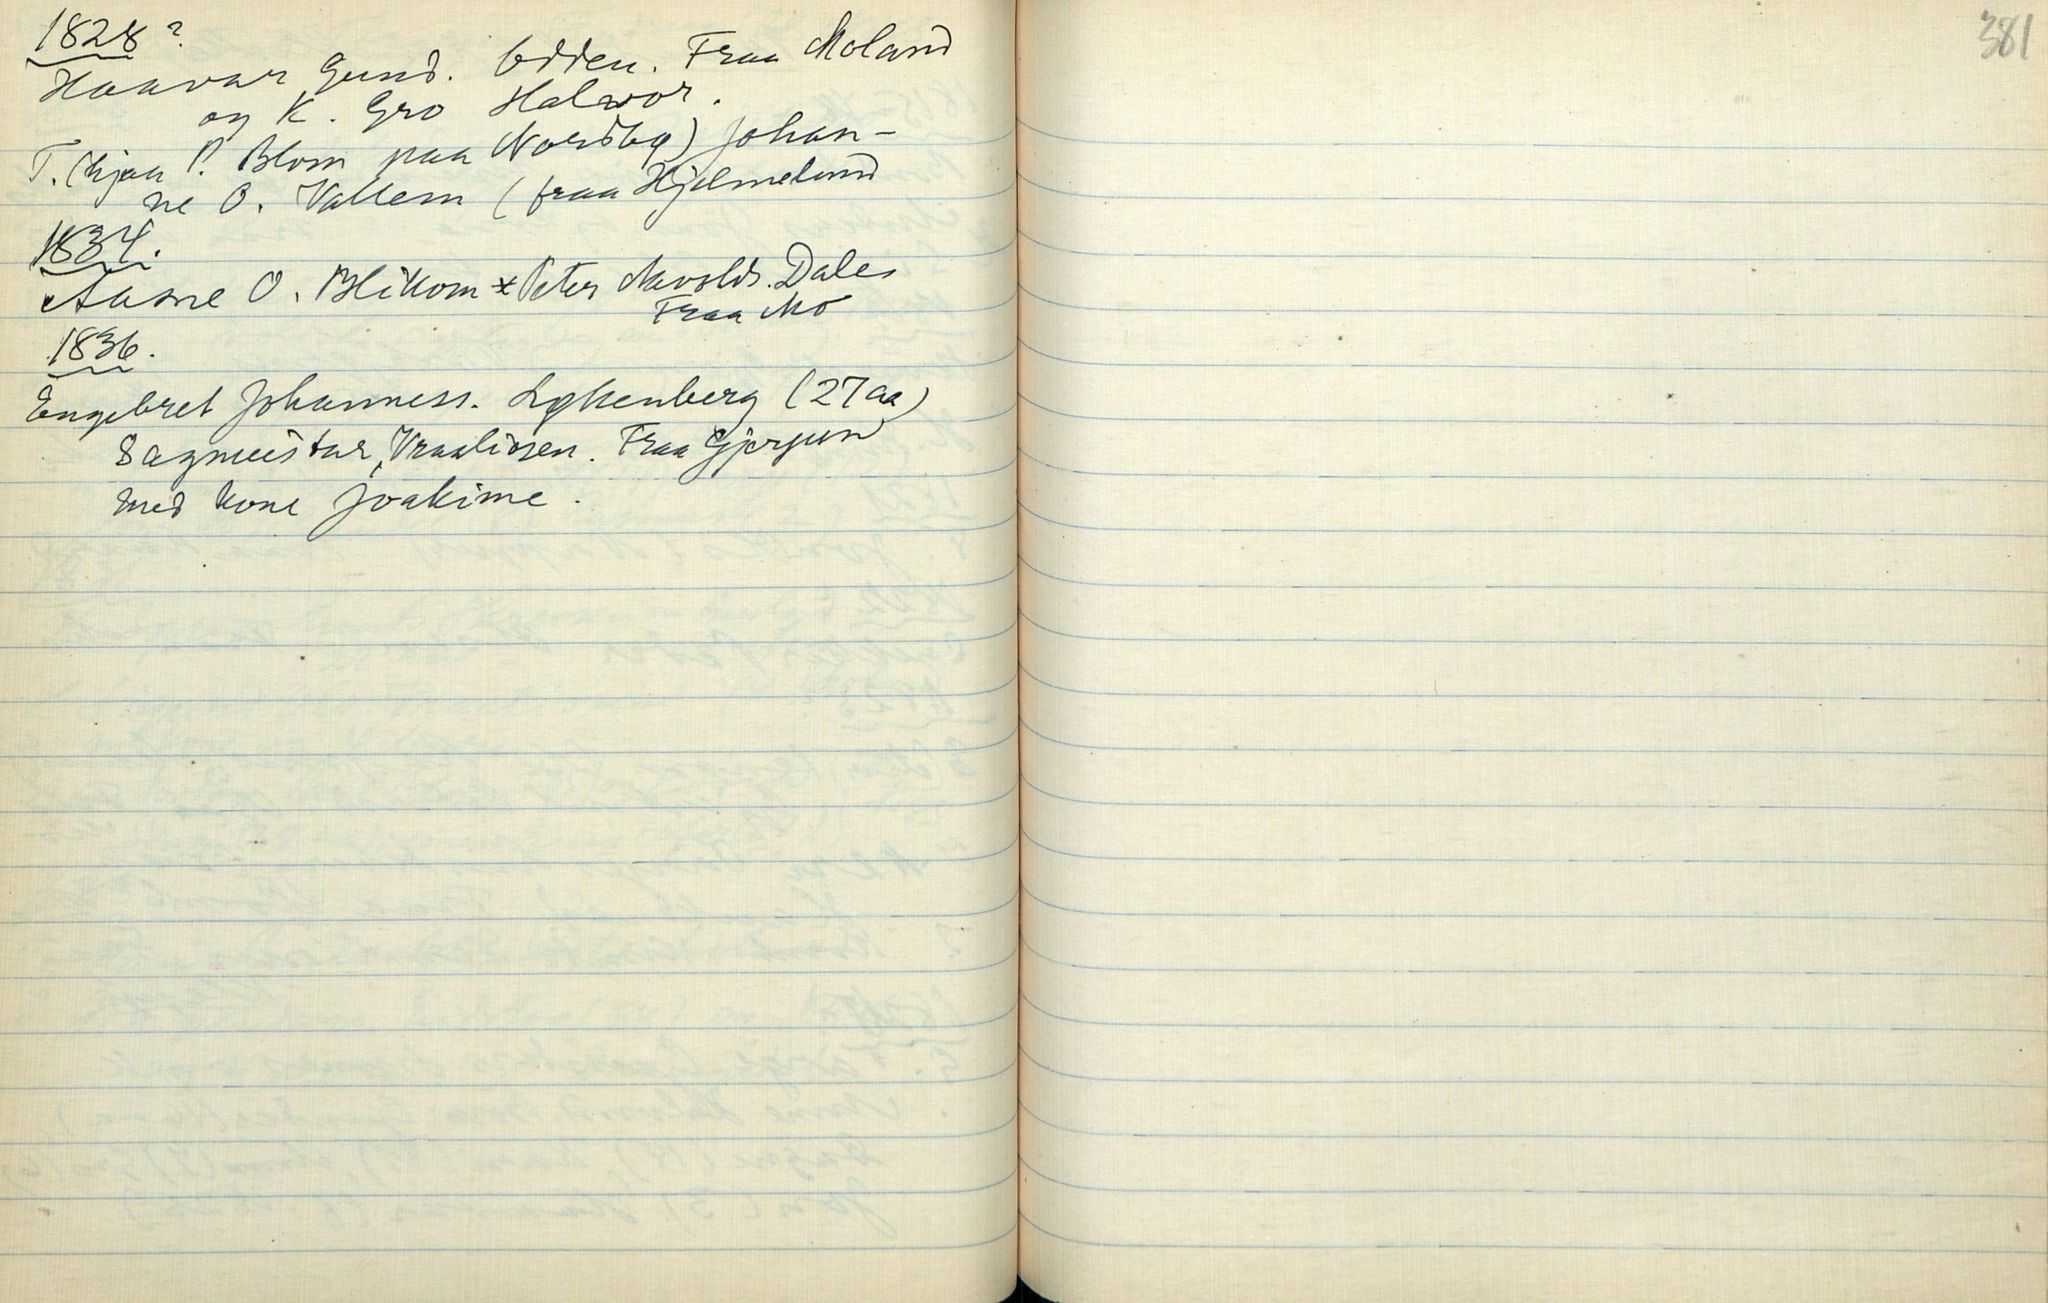 1828?
Haavar Gund. Odden. Fraa Moland
og K. Gro Halvor.
T. (hjaa P. Blom paa Nordbø) Johan-
ne O. Vallem (fraa Hjelmeland
1834.
Aasne O. Blikom × Peter Navolds. Dales
Fraa Mo
1836.
Engebret Johanness. Løkenberg (27 aa)
Sagmeistar, Vraaliosen. Fraa Gjerpen
med kone Joakime.
381